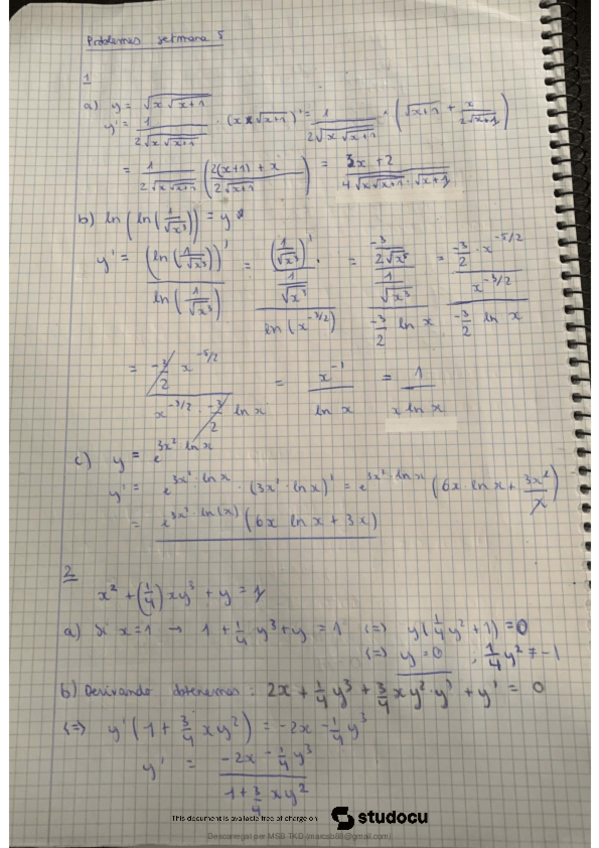 Problemes setmana 5
1
a) y = √(x√(x+1))
y' = 1/(2√(x√(x+1))) · (x√(x+1))' = 1/(2√(x√(x+1))) · (√(x+1) + x/(2√(x+1)))
= 1/(2√(x√(x+1))) ((2(x+1)+x)/(2√(x+1))) = (3x+2)/(4√(x√(x+1)) · √(x+1))
b) ln(ln(1/√x³)) = y
y' = (ln(1/√x³))'/ln(1/√x³) = ((1/√x³)'/(1/√x³))/ln(x^(-3/2)) = ((-3/(2√x⁵))/(1/√x³))/(-3/2 ln x) = ((-3/2 · x^(-5/2))/x^(-3/2))/(-3/2 ln x)
= (-3/2 x^(-5/2))/(x^(-3/2) · -3/2 ln x) = x^(-1)/ln x = 1/(x ln x)
c) y = e^(3x² ln x)
y' = e^(3x² · ln x) · (3x² · ln x)' = e^(3x² · ln x) (6x · ln x + 3x²/x)
= e^(3x² · ln(x)) (6x ln x + 3x)
2
x² + (1/4) xy³ + y = 1
a) Si x=1 → 1 + 1/4 y³ + y = 1 (=) y(1/4 y² + 1) = 0
(=) y = 0 ; 1/4 y² ≠ -1
b) Derivando obtenemos: 2x + 1/4 y³ + 3/4 xy² · y' + y' = 0
(=) y'(1 + 3/4 xy²) = -2x - 1/4 y³
y' = (-2x - 1/4 y³)/(1 + 3/4 xy²)
This document is available free of charge on studocu